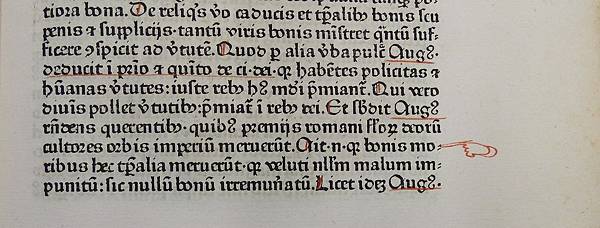 tiora bona. De reliq̃s ꝟo caducis et tꝑalibꝫ bonis seu
penis ⁊ supplicijs. tantũ viris bonis mĩstret qñtũ suf-
ficere ꝯspicit ad ꝟtutẽ. Quod ꝑ alia ꝟba pulcͬ Augꝰ.
deducit ĩ prĩo ⁊ quĩto de ci. dei. ꝙ habẽtes policitas ⁊
hũanas ꝟtutes: iuste rebꝫ hꝰ mũdi p̃miant̃. Qui vero
diuĩs pollet ꝟtutibꝫ: p̃miat̃ ĩ rebꝫ dei. Et sb̃dit Augꝰ.
rñdens querentibꝫ. quibꝰ premijs romani falsoꝝ deorũ
cultores orbis imperiũ meruerũt. Ait. n. ꝙ bonis mo-
ribus hec tꝑalia meruerũt. ꝙ veluti nullm̃ malum im-
punitũ: sic nullũ bonũ irremun̾atũ. Licet ideꝫ Augꝰ.